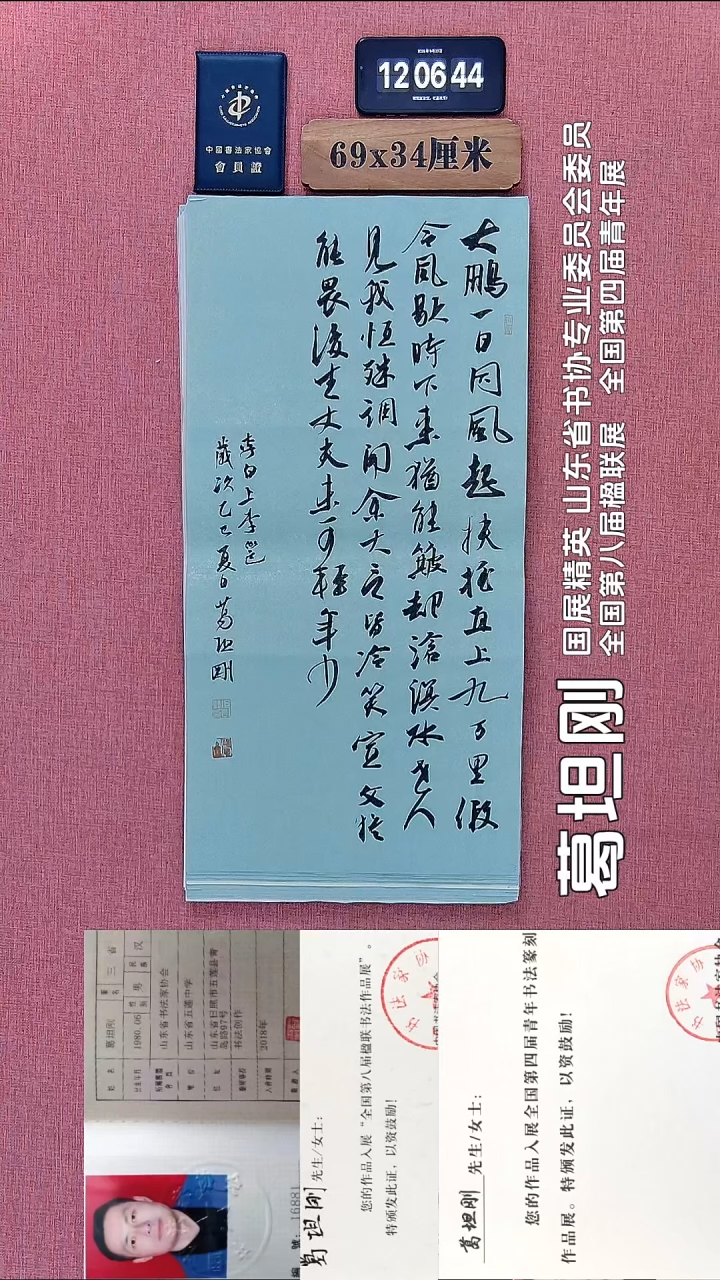 中國書法家協會
會員證
12 06 44
69x34厘米
大鵬一日同風起扶搖直上九万里假
令風歇時下來猶能簸却滄溟水世人
見我恒殊調聞余大言皆冷笑宣父猶
能畏後生丈夫未可輕年少
李白上李邕
歲次乙巳夏日葛坦剛
葛坦刚
国展精英 山东省书协专业委员会委员
全国第八届楹联展 全国第四届青年展
姓名 葛坦刚
1980.06
性别 男
民族 汉
山东省书法家协会
山东省五莲中学
山东省日照市五莲县青
岛路97号
书法创作
2018年
編號：16881
葛坦刚 先生/女士：
您的作品入展“全国第八届楹联书法作品展”。
特颁发此证，以资鼓励！
葛坦刚 先生/女士：
您的作品入展全国第四届青年书法篆刻
作品展。特颁发此证，以资鼓励！